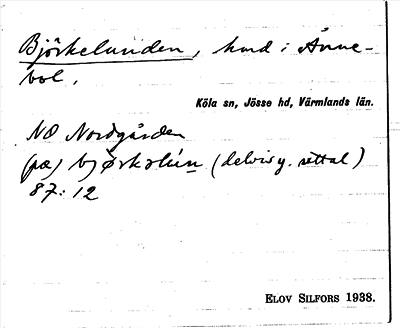 Björkelunden, hmd i Ånne-
bol.
Köla sn, Jösse hd, Värmlands län.
NO Nordgården
(pæ) bjørkəlún (delvis y. uttal)
87:12
ELOV SILFORS 1938.